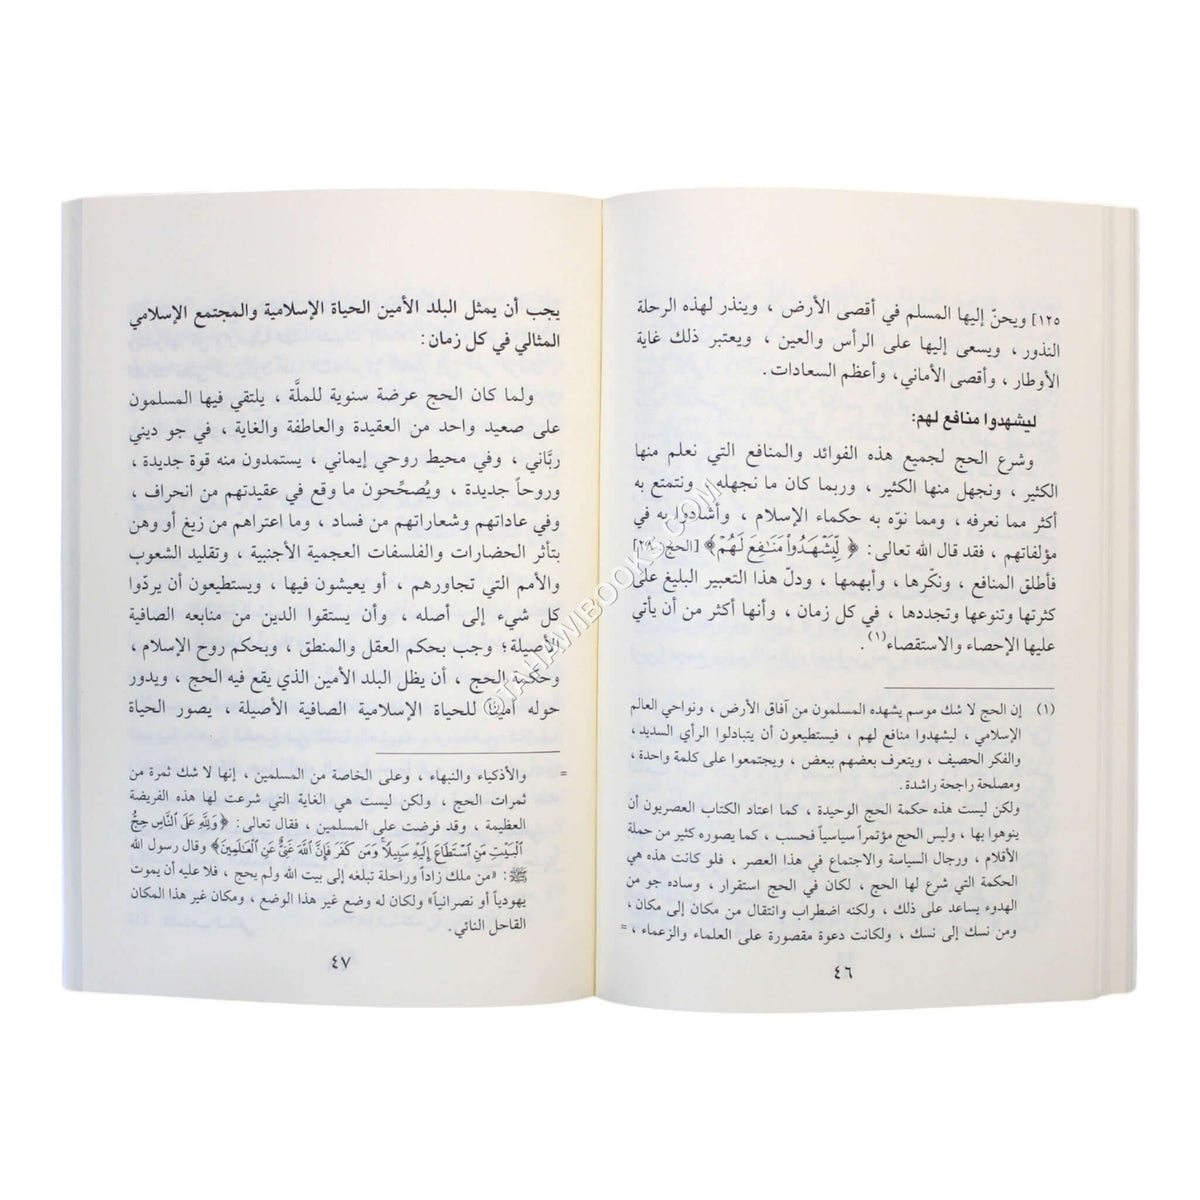 ١٢٥] ويحنّ إليها المسلم في أقصى الأرض ، وينذر لهذه الرحلة
النذور ، ويسعى إليها على الرأس والعين ، ويعتبر ذلك غاية
الأوطار ، وأقصى الأماني، وأعظم السعادات .
ليشهدوا منافع لهم:
وشرع الحج لجميع هذه الفوائد والمنافع التي نعلم منها
الكثير ، ونجهل منها الكثير ، وربما كان ما نجهله ونتمتع به
أكثر مما نعرفه ، ومما نوّه به حكماء الإسلام ، وأشادوا به في
مؤلفاتهم ، فقد قال الله تعالى : ﴿ لِّيَشْهَدُوا۟ مَنَٰفِعَ لَهُمْ ﴾ [الحج: ٢٩]
فأطلق المنافع ، ونكّرها ، وأبهمها ، ودلّ هذا التعبير البليغ على
كثرتها وتنوعها وتجددها ، في كل زمان ، وأنها أكثر من أن يأتي
عليها الإحصاء والاستقصاء(١) .
(١) إن الحج لا شك موسم يشهده المسلمون من آفاق الأرض ، ونواحي العالم
الإسلامي ، ليشهدوا منافع لهم ، فيستطيعون أن يتبادلوا الرأي السديد ،
والفكر الحصيف ، ويتعرف بعضهم ببعض ، ويجتمعوا على كلمة واحدة ،
ومصلحة راجحة راشدة .
ولكن ليست هذه حكمة الحج الوحيدة ، كما اعتاد الكتاب العصريون أن
ينوهوا بها ، وليس الحج مؤتمراً سياسياً فحسب ، كما يصوره كثير من حملة
الأقلام ، ورجال السياسة والاجتماع في هذا العصر ، فلو كانت هذه هي
الحكمة التي شرع لها الحج ، لكان في الحج استقرار ، وساده جو من
الهدوء يساعد على ذلك ، ولكنه اضطراب وانتقال من مكان إلى مكان ،
ومن نسك إلى نسك ، ولكانت دعوة مقصورة على العلماء والزعماء ، =
٤٦
يجب أن يمثل البلد الأمين الحياة الإسلامية والمجتمع الإسلامي
المثالي في كل زمان :
ولما كان الحج عرضة سنوية للملَّة ، يلتقي فيها المسلمون
على صعيد واحد من العقيدة والعاطفة والغاية ، في جو ديني
ربَّاني ، وفي محيط روحي إيماني ، يستمدون منه قوة جديدة ،
وروحاً جديدة ، ويُصحِّحون ما وقع في عقيدتهم من انحراف ،
وفي عاداتهم وشعاراتهم من فساد ، وما اعتراهم من زيغ أو وهن
بتأثر الحضارات والفلسفات العجمية الأجنبية ، وتقليد الشعوب
والأمم التي تجاورهم ، أو يعيشون فيها ، ويستطيعون أن يردّوا
كل شيء إلى أصله ، وأن يستقوا الدين من منابعه الصافية
الأصيلة؛ وجب بحكم العقل والمنطق ، وبحكم روح الإسلام ،
وحكمة الحج ، أن يظل البلد الأمين الذي يقع فيه الحج ، ويدور
حوله أميناً للحياة الإسلامية الصافية الأصيلة ، يصور الحياة
= والأذكياء والنبهاء ، وعلى الخاصة من المسلمين ، إنها لا شك ثمرة من
ثمرات الحج ، ولكن ليست هي الغاية التي شرعت لها هذه الفريضة
العظيمة ، وقد فرضت على المسلمين ، فقال تعالى : ﴿ وَلِلَّهِ عَلَى النَّاسِ حِجُّ
الْبَيْتِ مَنِ اسْتَطَاعَ إِلَيْهِ سَبِيلًا وَمَن كَفَرَ فَإِنَّ اللَّهَ غَنِيٌّ عَنِ الْعَالَمِينَ ﴾ وقال رسول الله
ﷺ : «من ملك زاداً وراحلة تبلغه إلى بيت الله ولم يحج ، فلا عليه أن يموت
يهودياً أو نصرانياً» ولكان له وضع غير هذا الوضع ، ومكان غير هذا المكان
القاحل النائي .
٤٧
©TAHAWIBOOKS.COM